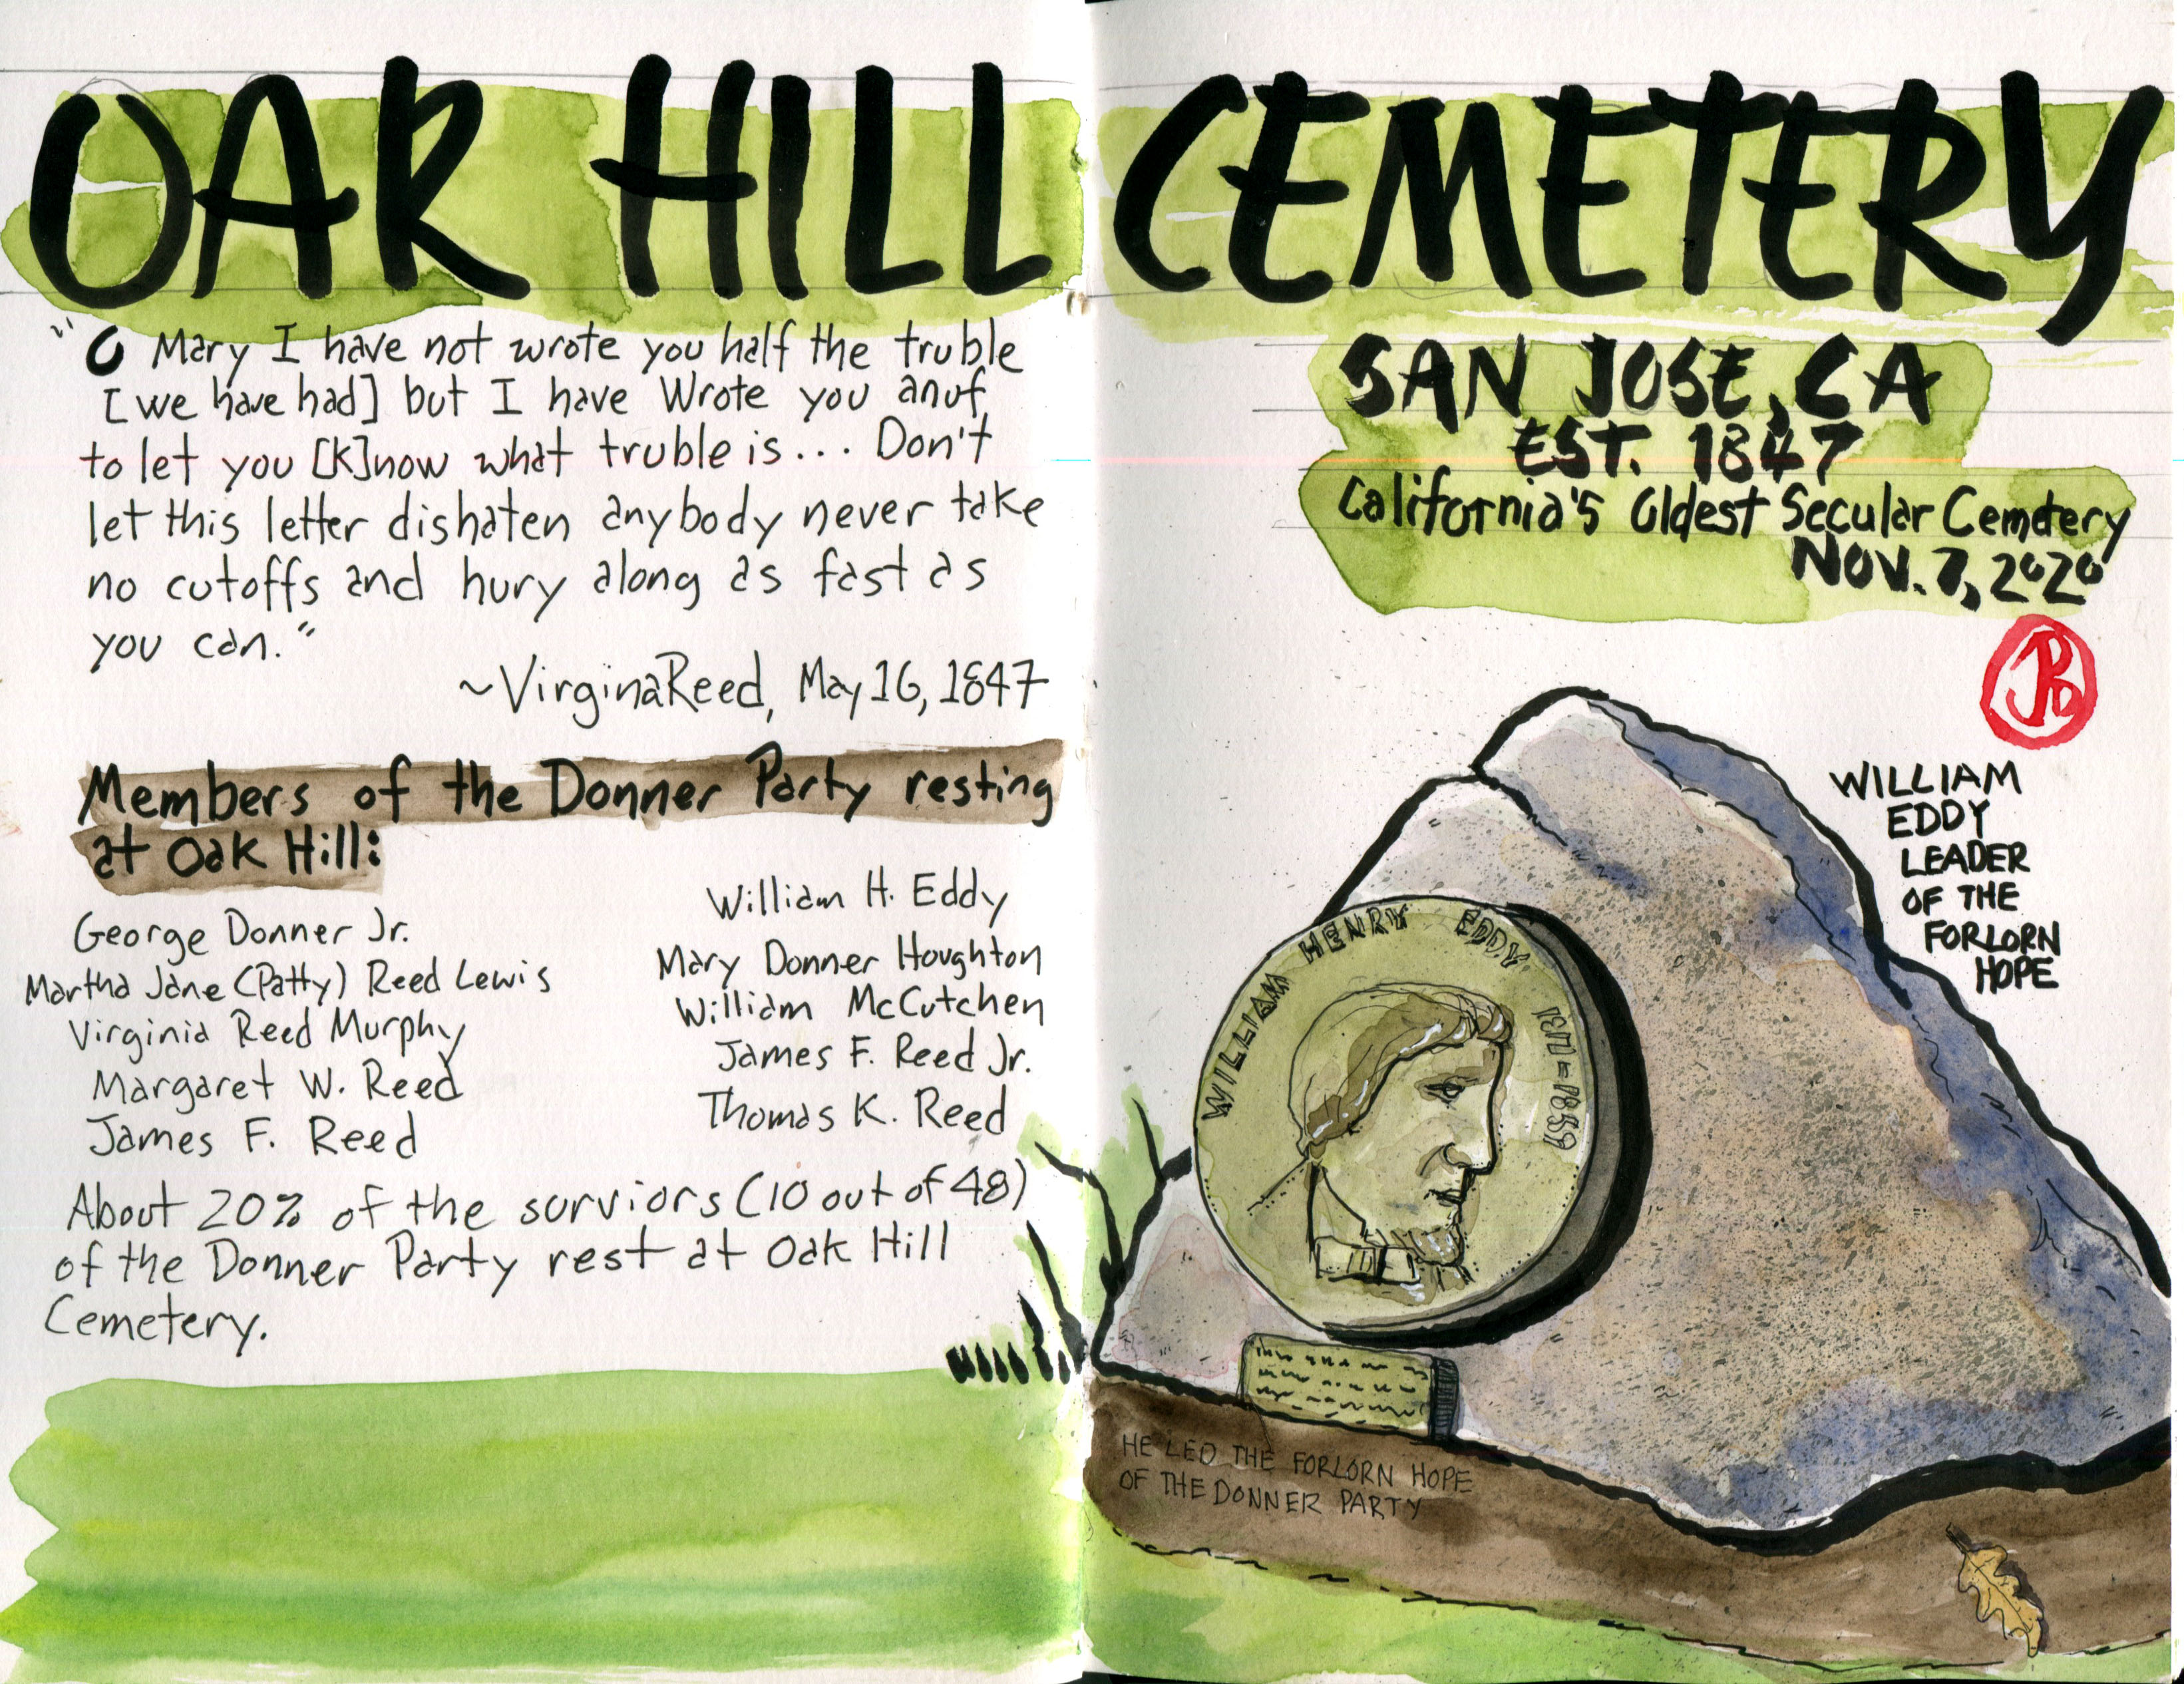 OAK HILL CEMETERY
"O Mary I have not wrote you half the truble
[we have had] but I have Wrote you anuf
to let you [K]now what truble is... Don't
let this letter dishaten anybody never take
no cutoffs and hury along as fast as
you can."
~VirginaReed, May 16, 1847
Members of the Donner Party resting
at Oak Hill:
George Donner Jr.
Martha Jane (Patty) Reed Lewis
Virginia Reed Murphy
Margaret W. Reed
James F. Reed
William H. Eddy
Mary Donner Houghton
William McCutchen
James F. Reed Jr.
Thomas K. Reed
About 20% of the surviors (10 out of 48)
of the Donner Party rest at Oak Hill
Cemetery.
SAN JOSE, CA
EST. 1847
California's Oldest Secular Cemetery
NOV. 7, 2020
WILLIAM
EDDY
LEADER
OF THE
FORLORN
HOPE
WILLIAM HENRY EDDY
HE LED THE FORLORN HOPE
OF THE DONNER PARTY